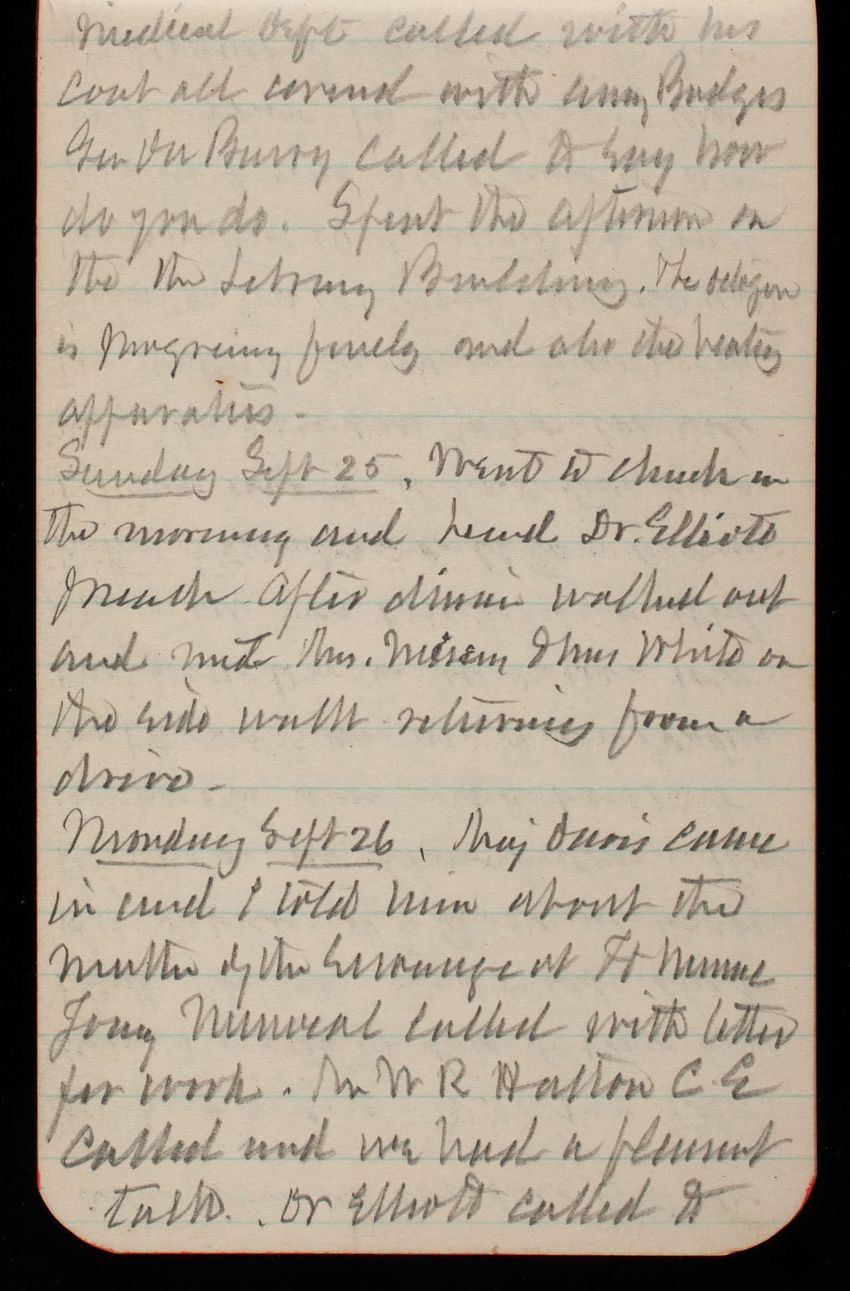 Medical Dept called with his
coat all covered with army Badges
Gen Van Buren called to say how
do you do. Spent the afternoon on
the the Library Building. The octagon
is progressing finely and also the heating
apparatus.
Sunday Sept 25, Went to church in
the morning and heard Dr. Elliott
preach After dinner walked out
and met Mrs. & Miss White on
the side walk returning from a
drive.
Monday Sept 26, Maj Davis came
in and I told him about the
matter of the Sewerage at Ft Monroe
called with letter
for work. Mr W R Hutton C E
Called and we had a pleasant
talk. Dr Elliott called to